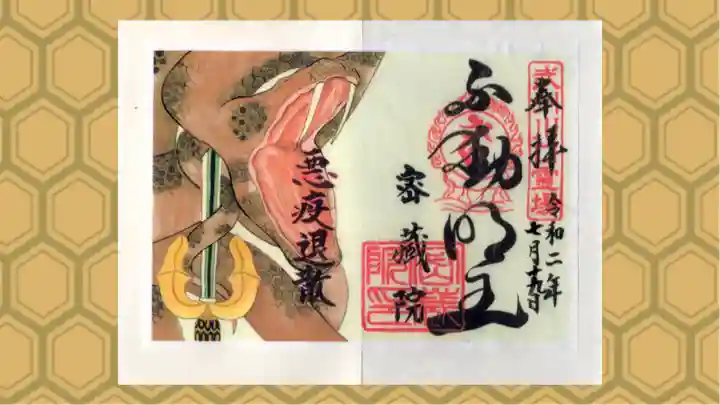 奉拝
令和二年
七月十九日
不動明王
密藏院
悪疫退散